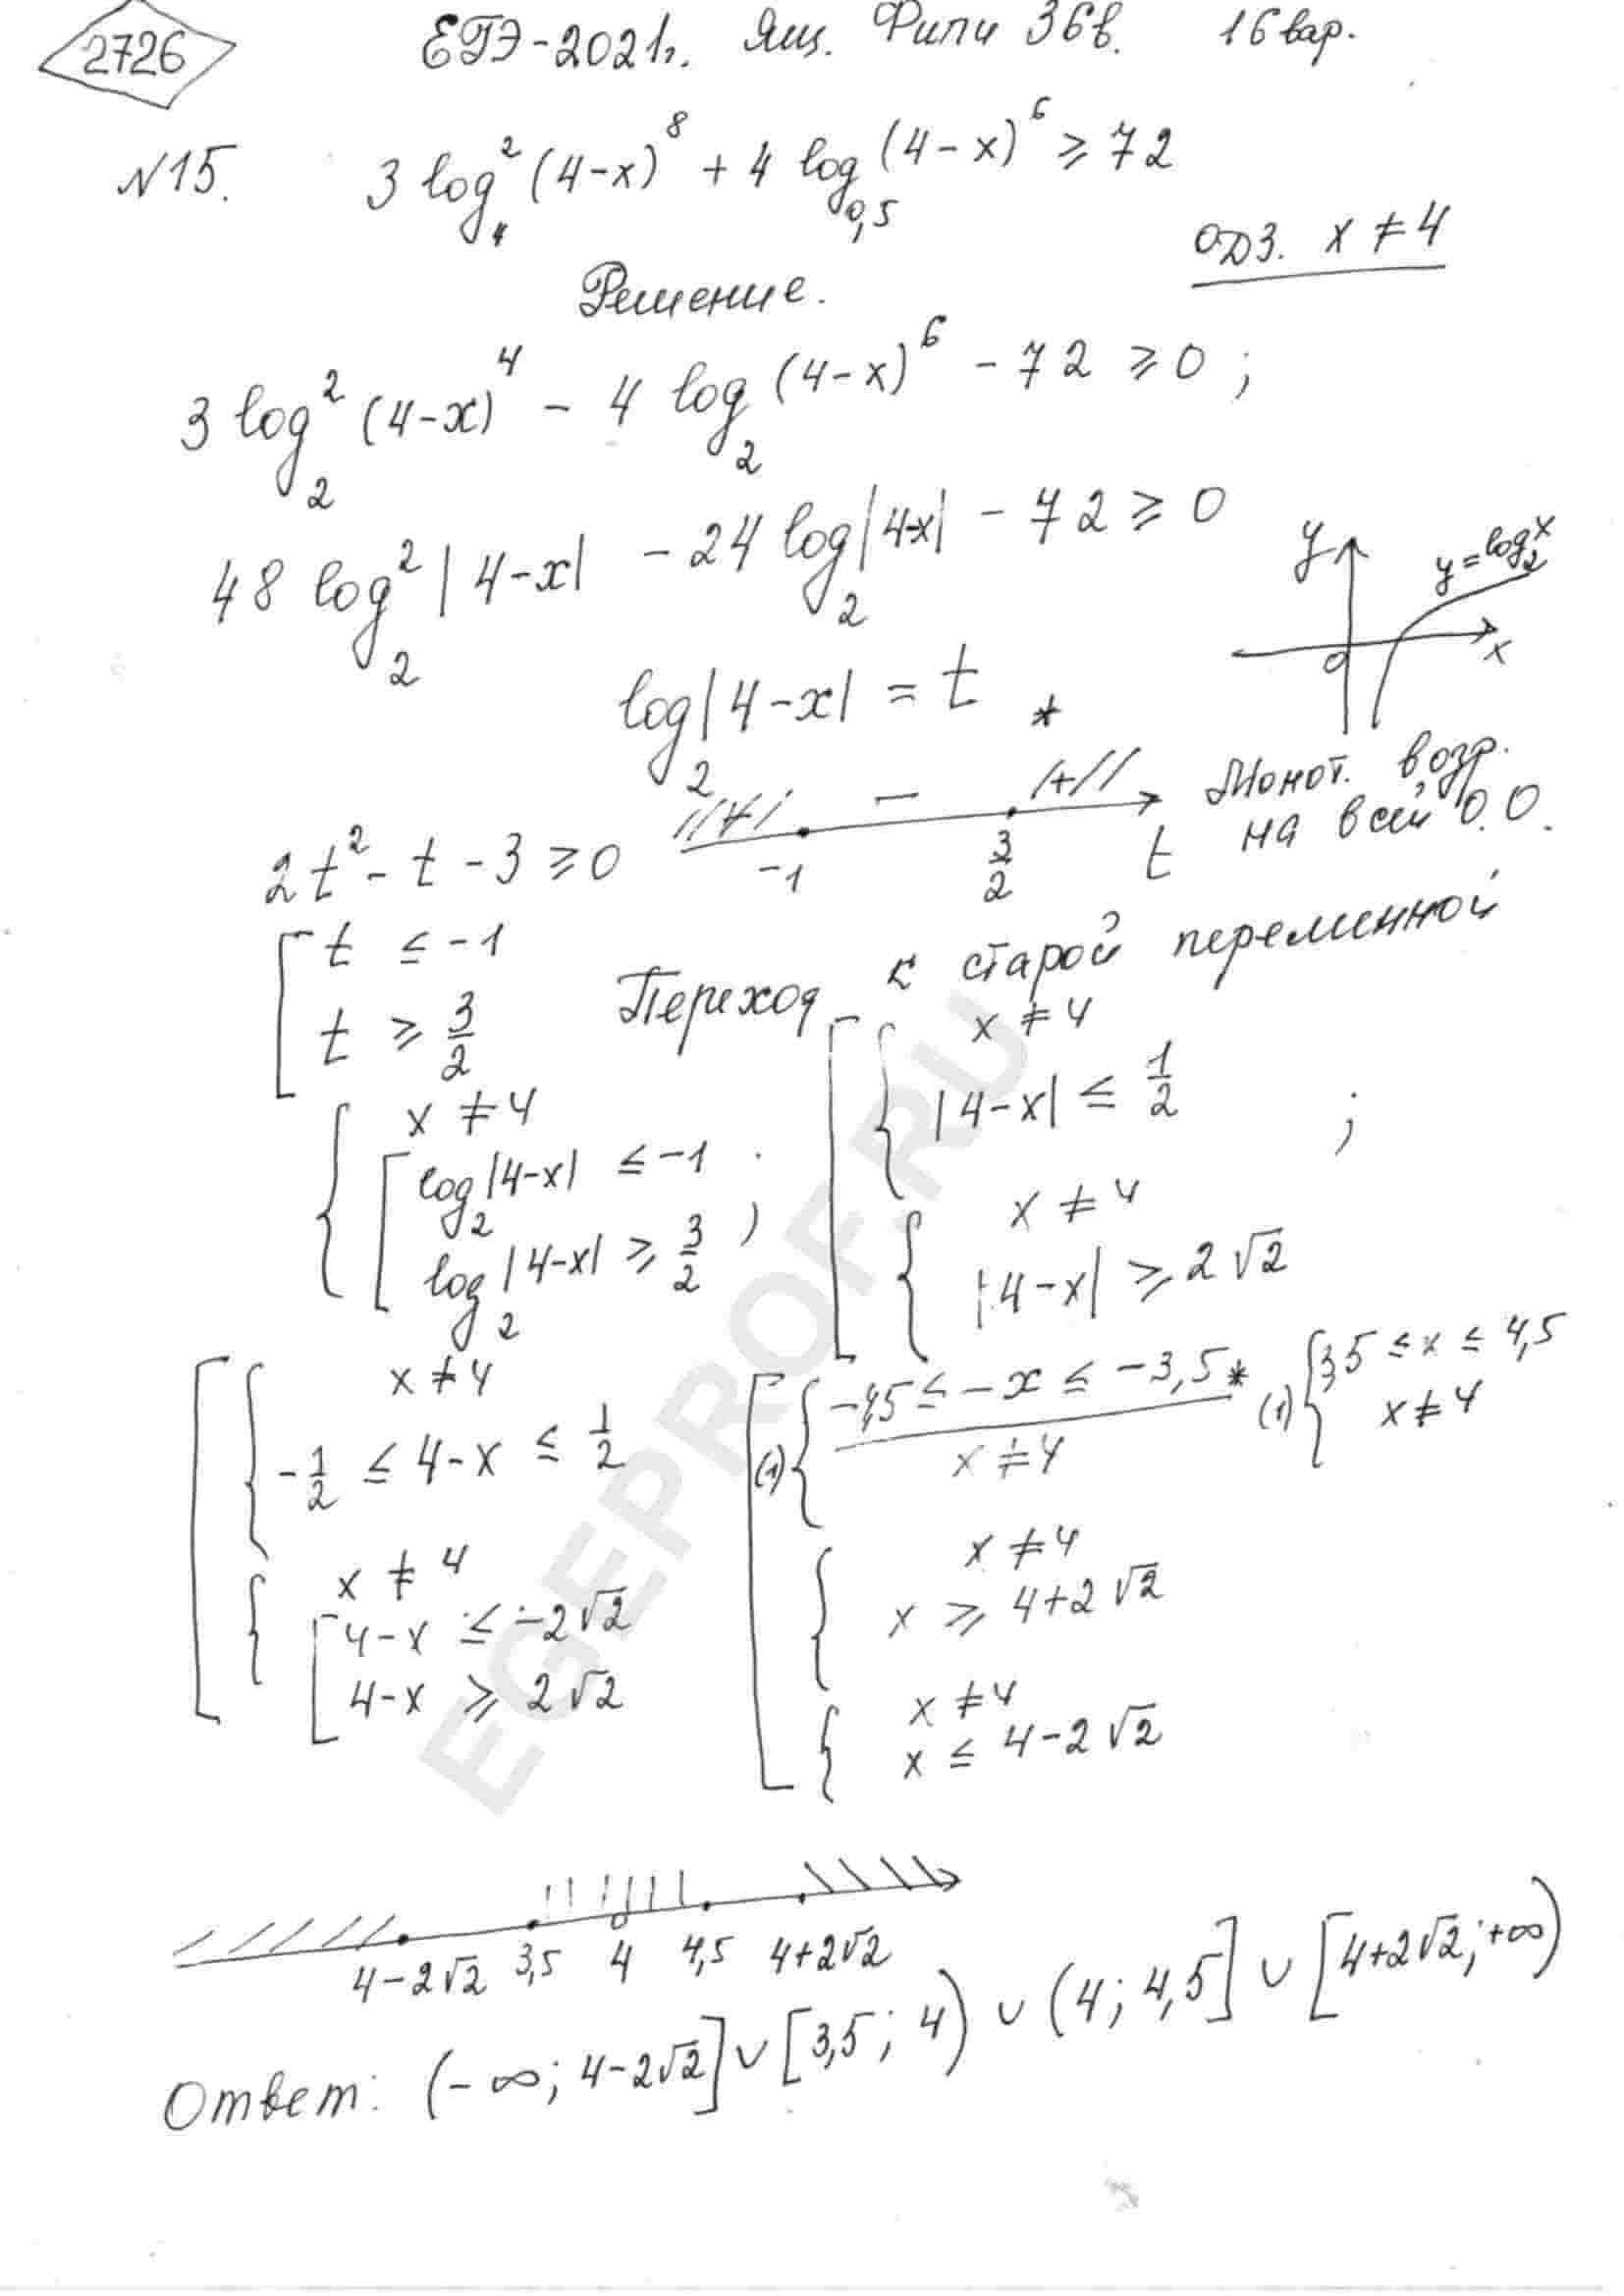 2726
ЕГЭ-2021г. Ящ. Фипи 36в. 16 вар.
N15. 3 log₄² (4-x)⁸ + 4 log₀,₅ (4-x)⁶ ≥ 72
ОДЗ. x ≠ 4
Решение.
3 log₂² (4-x)⁴ - 4 log₂ (4-x)⁶ - 72 ≥ 0 ;
48 log₂² |4-x| - 24 log₂ |4-x| - 72 ≥ 0
y
y = log₂ x
0
x
log₂ |4-x| = t *
Монот. возр.
на всей О.О.
2t² - t - 3 ≥ 0
+ - +
-1 3/2 t
[ t ≤ -1
t ≥ 3/2
Переход к старой переменной
{ x ≠ 4
[ log₂ |4-x| ≤ -1
log₂ |4-x| ≥ 3/2 ;
[ { x ≠ 4
|4-x| ≤ 1/2 ;
{ x ≠ 4
|4-x| ≥ 2√2
[ { x ≠ 4
-1/2 ≤ 4-x ≤ 1/2
{ x ≠ 4
[ 4-x ≤ -2√2
4-x ≥ 2√2
[ (1) { -4,5 ≤ -x ≤ -3,5 *
x ≠ 4
(1) { 3,5 ≤ x ≤ 4,5
x ≠ 4
{ x ≠ 4
x ≥ 4+2√2
{ x ≠ 4
x ≤ 4-2√2
4-2√2 3,5 4 4,5 4+2√2
Ответ: (-∞; 4-2√2] ∪ [3,5; 4) ∪ (4; 4,5] ∪ [4+2√2; +∞)
EGEPROF.RU